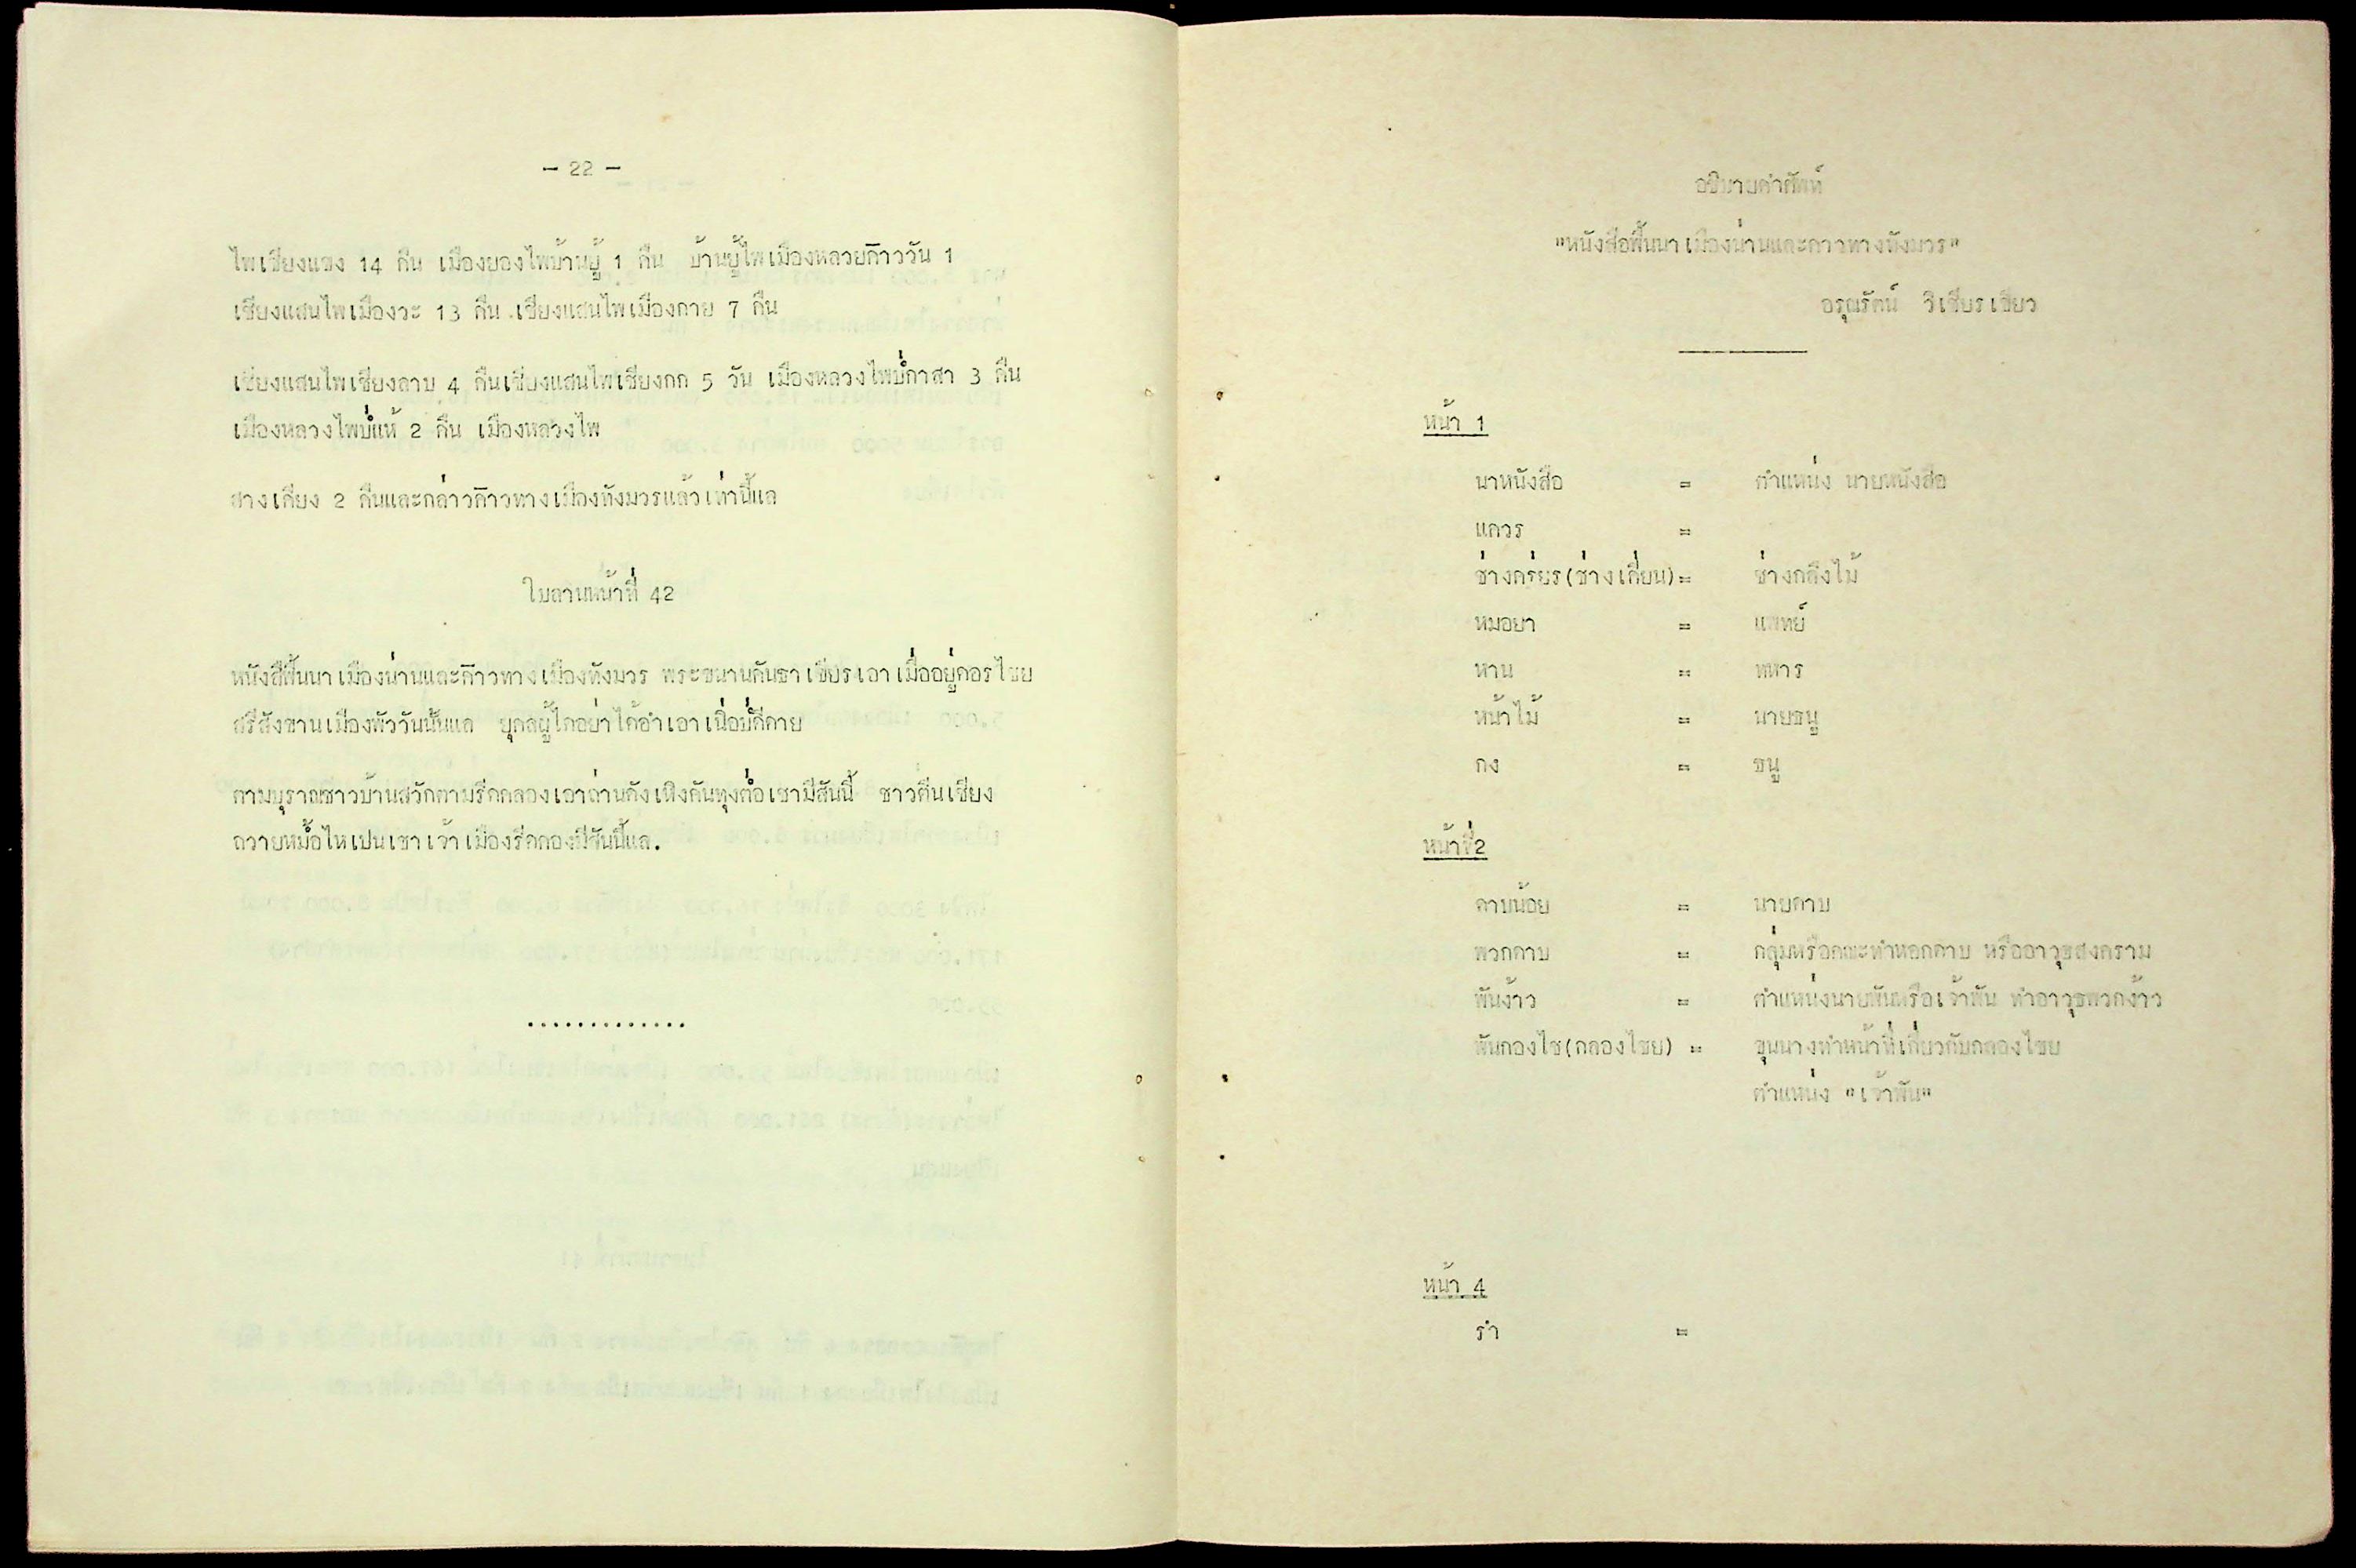 - 22 -
ไพเชียงแขง 14 คืน เมืองยองไพบ้านยู้ 1 คืน บ้านยู้ไพเมืองหลวยก๊าววัน 1
เชียงแสนไพเมืองวะ 13 คืน เชียงแสนไพเมืองกาย 7 คืน
เชียงแสนไพเชียงลาบ 4 คืนเชียงแสนไพเชียงกก 5 วัน เมืองหลวงไพบ่ำกาสา 3 คืน
เมืองหลวงไพบ่ำแห้ 2 คืน เมืองหลวงไพ
สางเกียง 2 คืนและกล่าวก๊าวทางเมืองทังมวรแล้วเท่านี้แล
ใบลานหน้าที่ 42
หนังสืพื้นนาเมืองน่านและก๊าวทางเมืองทังมวร พระขนานคันธาเขียรเอาเมื่ออยู่ดอรไชย
ศรีสังขานเมืองพัววันนั้นแล ยุคลผู้ใดอย่าได้อำเอาเนื่อบ่ดีดาย
ตามบุราณชาวบ้านสวักตามรีดคลองเอาถ่านดังเหิงคันทุงต่ำอเชามีสันนี้ ชาวตีนเชียง
ถวายหม้ำอไหเปนเชาเจ้าเมืองรีดคองมีสันนี้แล.
.............
อธิบายคำศัพท์
"หนังสือพื้นนาเมืองน่านและกาวทางทังมวร"
อรุณรัตน์ วิเชียรเขียว
หน้า 1
นาหนังสือ = ตำแหน่ง นายหนังสือ
แควร =
ช่างคร่ยร(ช่างเคี่ยน)= ช่างกลึงไม้
หมอยา = แพทย์
หาน = ทหาร
หน้าไม้ = นายธนู
กง = ธนู
หน้าที่2
ดาบน้อย = นายดาบ
พวกดาบ = กลุ่มหรือคณะทำหอกดาบ หรืออาวุธสงคราม
พันง้าว = ตำแหน่งนายพันหรือเจ้าพัน ทำอาวุธพวกง้าว
พันกองไช(กลองไชย) = ขุนนางทำหน้าที่เกี่ยวกับกลองไชย
ตำแหน่ง "เจ้าพัน"
หน้า 4
รำ =